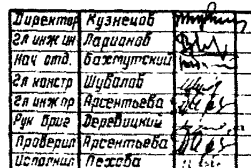 Директор Кузнецов
Гл инж ин Ларионов
Нач отд. Бахтутский
Гл констр Шувалов
Гл инж пр Арсентьева
Рук бриг Деревицкий
Проверил Арсентьева
Исполнил Пехова